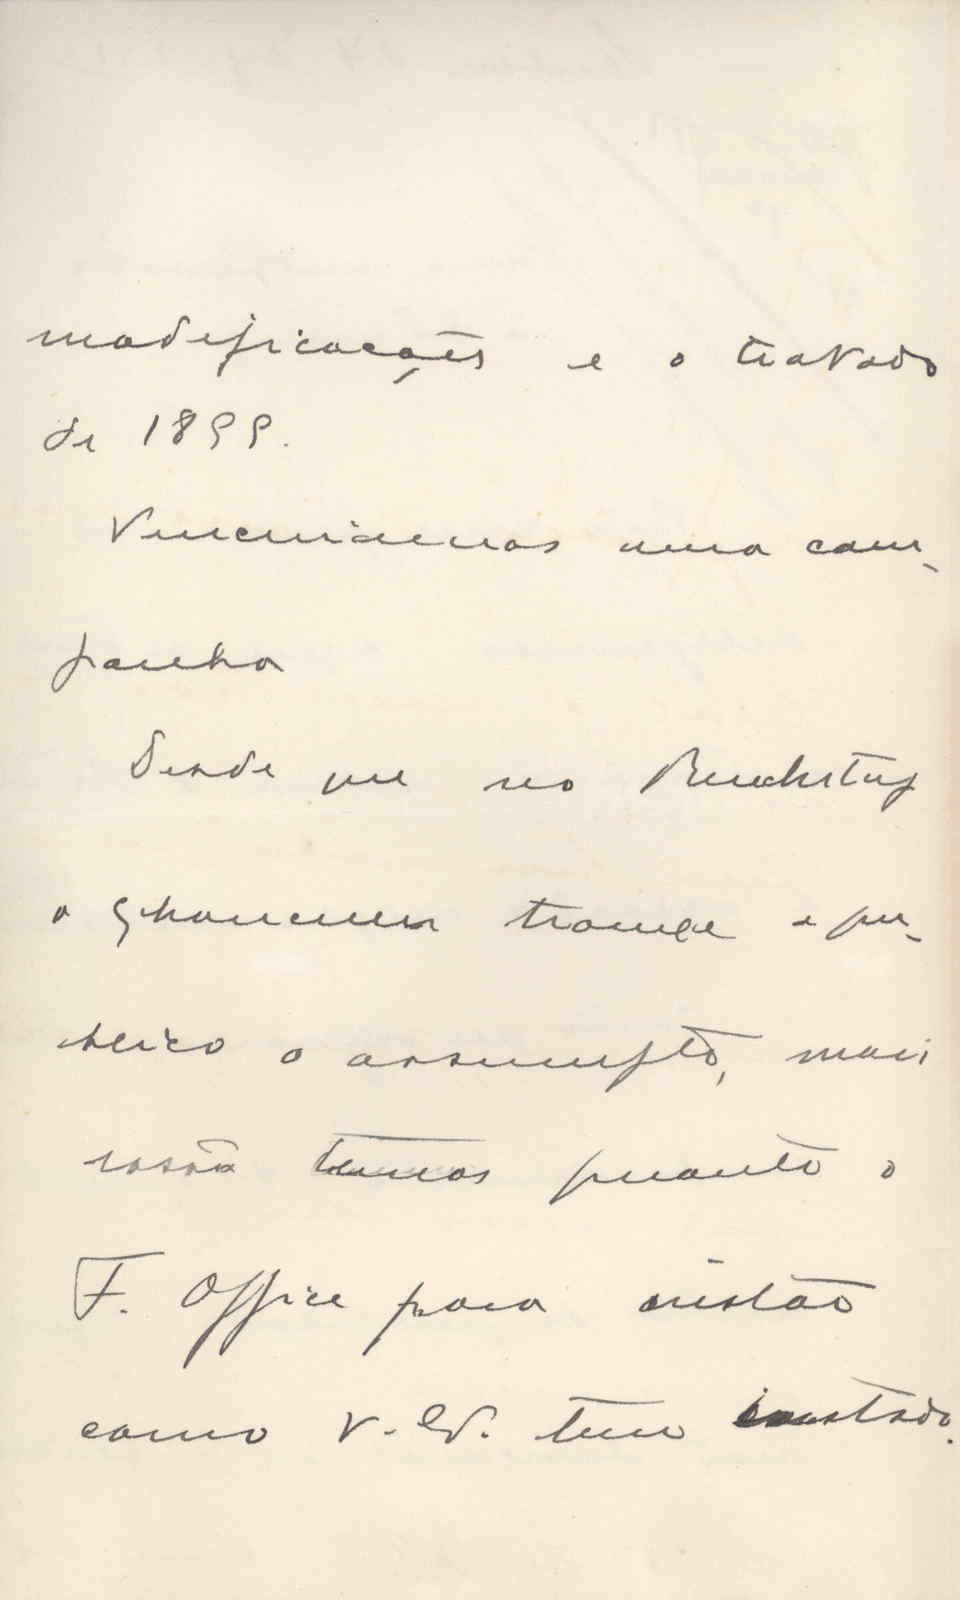 modificações e o tratado
de 1899.
Venceriamos uma cam-
panha
Desde que no Reichstag
o Chanceller trouxe a pu-
blico o assumpto, mais
rasão temos quanto o
F. Office para
como V. Ex. tem instado.